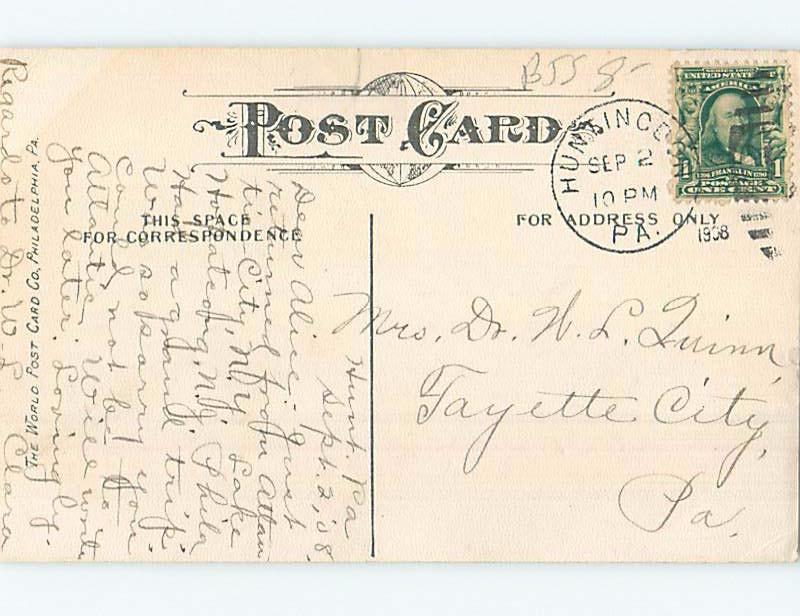 B55 8-
POST CARD
HUNTINGDON
SEP 2
10 PM
PA.
1908
SERIES 1902
UNITED STATES OF
AMERICA
1706 FRANKLIN 1790
POSTAGE
1 ONE CENT 1
THIS SPACE
FOR CORRESPONDENCE
FOR ADDRESS ONLY
THE WORLD POST CARD CO., PHILADELPHIA, PA.
Hunt. Pa
Sept. 2, '08.
Dear Alice:- Just
returned from Atlan
tic City, N.Y. Lake
Hopatcong, N.J. Phila
Had a grand trip.
Was so sorry you
could not be to
Atlantic. Will write
you later. Lovingly.
Clara
Regards to Dr. W. L.
Mrs. Dr. W. L. Quinn,
Fayette City,
Pa.